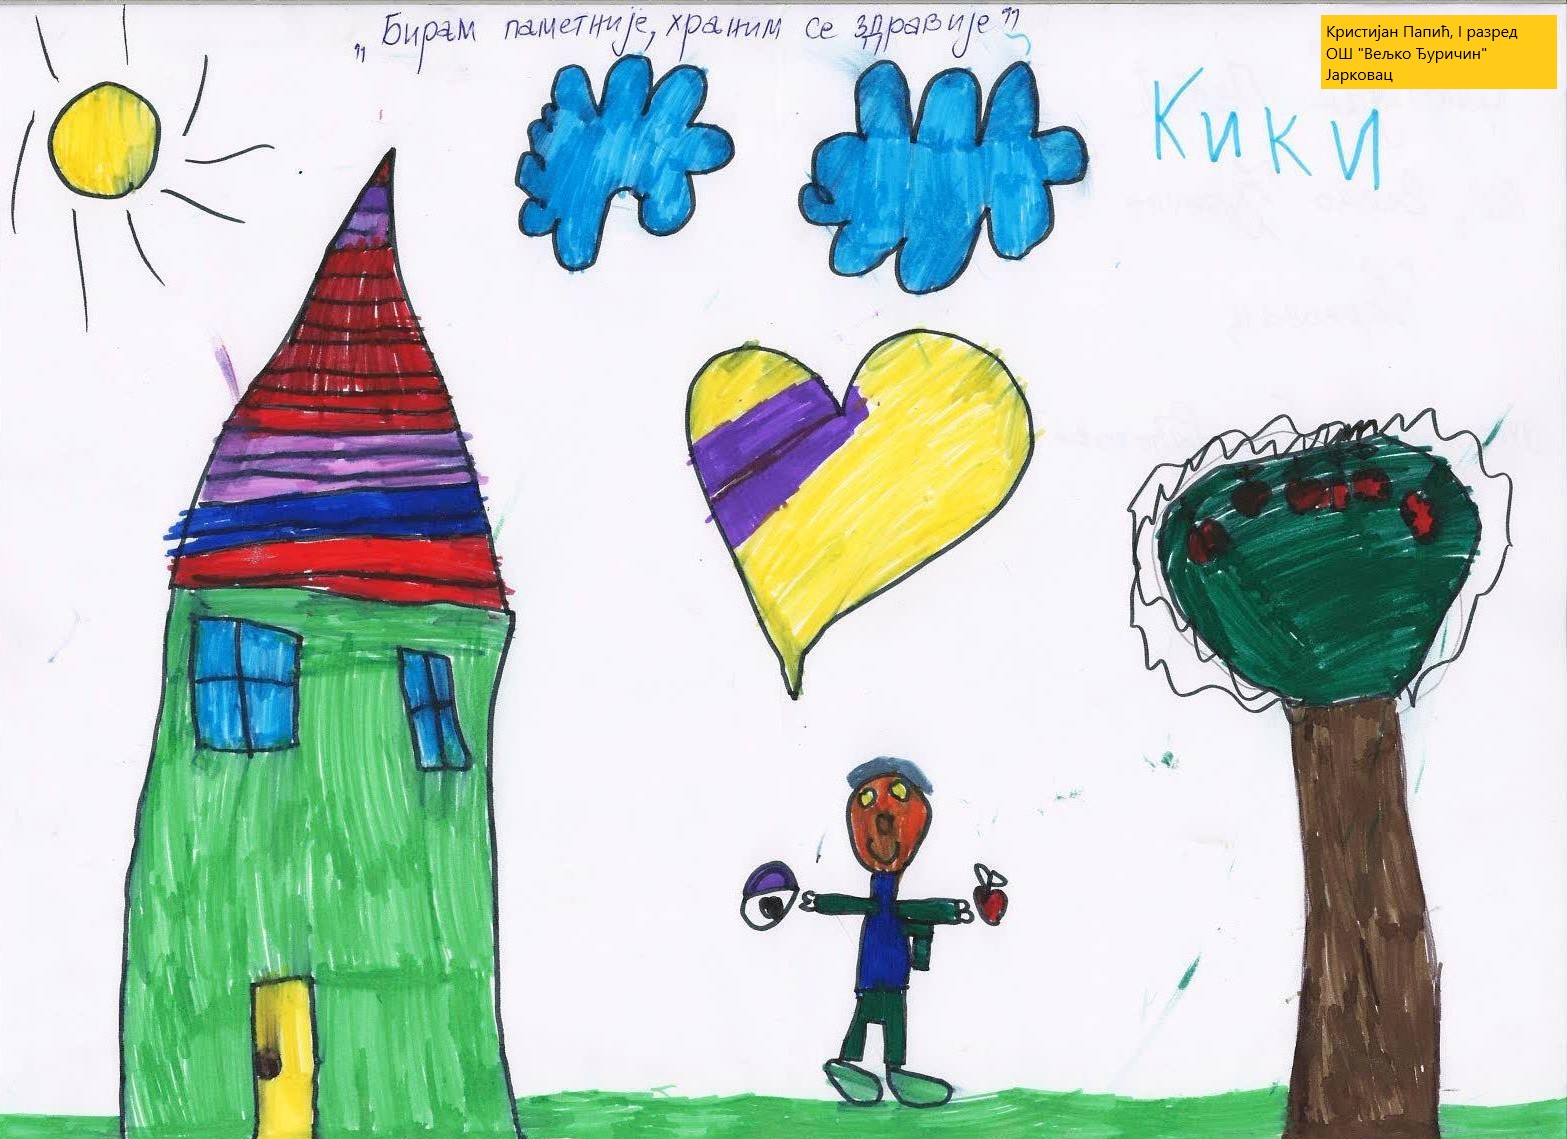 „Бирам паметније, храним се здравије”
Кристијан Папић, I разред
ОШ "Вељко Ђуричин"
Јарковац
Кики